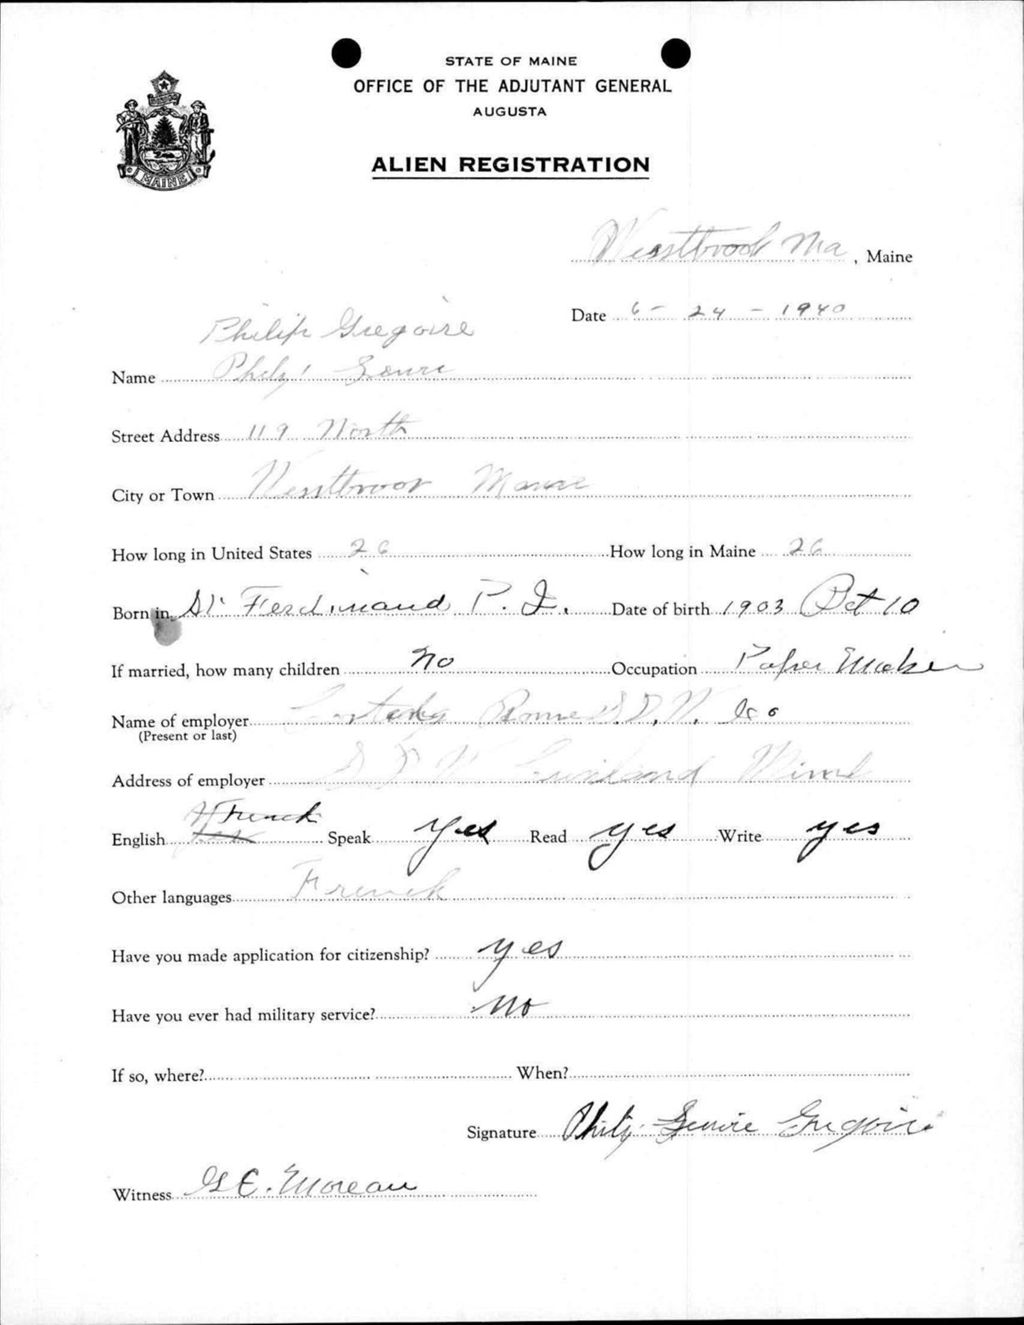 STATE OF MAINE
OFFICE OF THE ADJUTANT GENERAL
AUGUSTA
MAINE
ALIEN REGISTRATION
Westbrook Ma, Maine
Date 6 - 24 - 1940
Philip Gregoire
Name Philip
Street Address 119 North
City or Town Westbrook Maine
How long in United States 26 How long in Maine 26
Born in St Ferdinand P. Q. Date of birth 1903 Oct 10
If married, how many children No Occupation Paper Maker
Name of employer S.D.W. Co
(Present or last)
Address of employer S D W
English French Speak yes Read yes Write yes
Other languages French
Have you made application for citizenship? yes
Have you ever had military service? No
If so, where? When?
Signature Philip Gregoire
Witness G E. Moreau